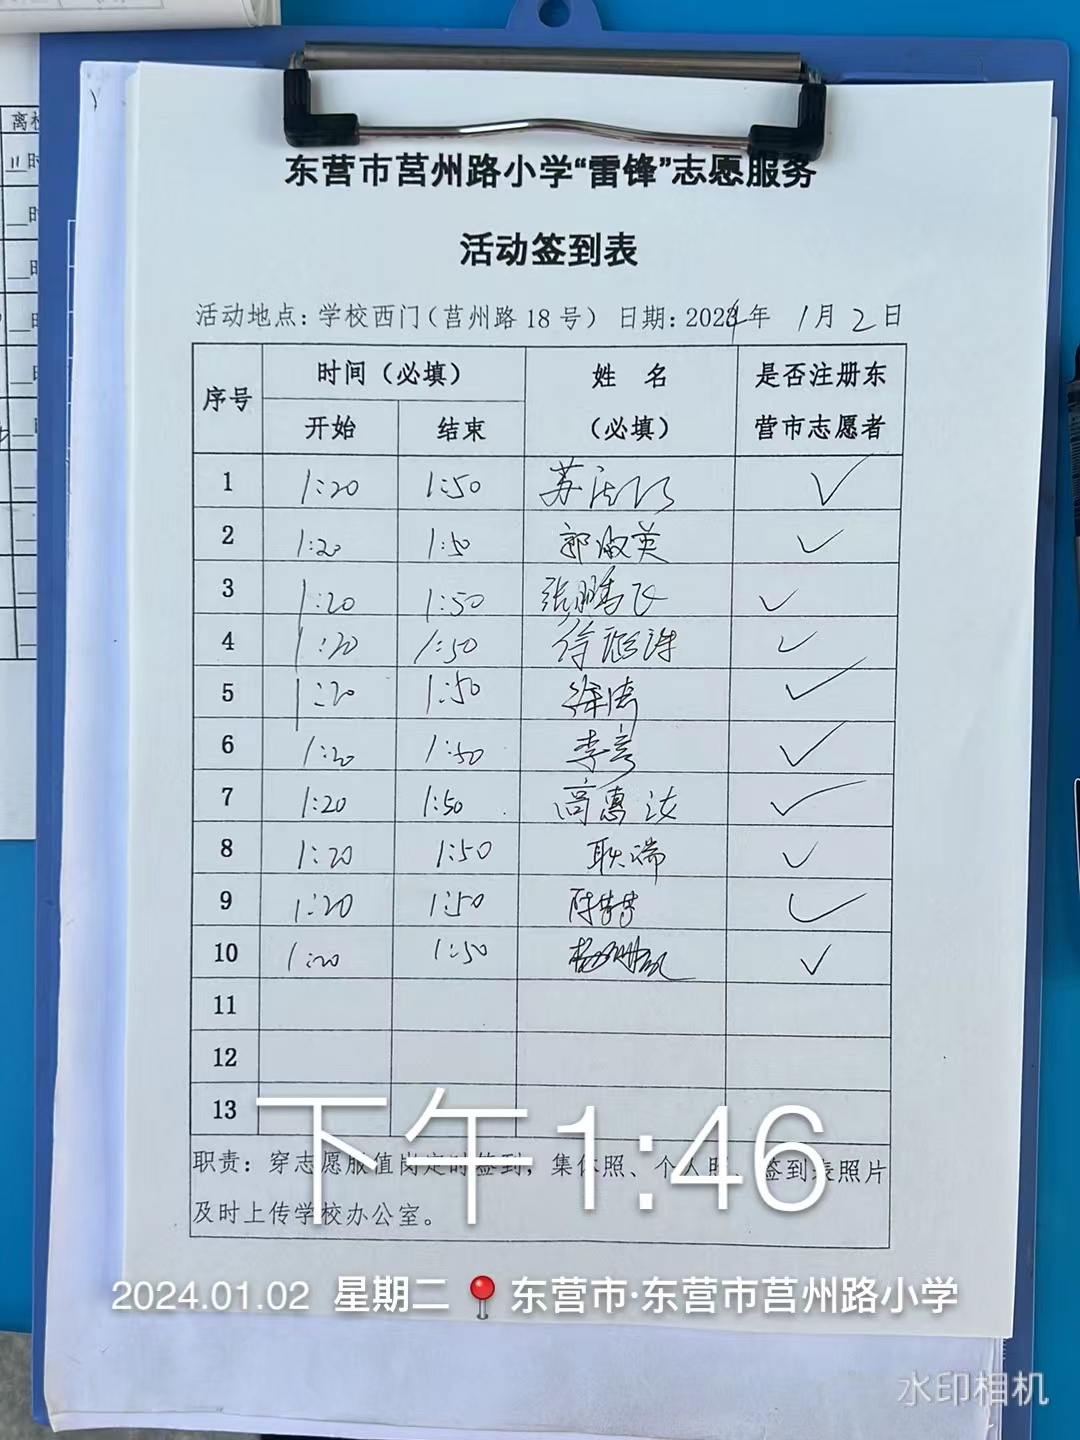 东营市莒州路小学“雷锋”志愿服务
活动签到表
活动地点：学校西门（莒州路18号） 日期：2024年 1月2日
序号 时间（必填） 姓 名 是否注册东
开始 结束 （必填） 营市志愿者
1 1:20 1:50 苏 ✓
2 1:20 1:50 郭淑英 ✓
3 1:20 1:50 张鹏飞 ✓
4 1:20 1:50 徐 ✓
5 1:20 1:50 徐倩 ✓
6 1:20 1:50 李彦 ✓
7 1:20 1:50 高惠 ✓
8 1:20 1:50 耿端 ✓
9 1:20 1:50 陈梦梦 ✓
10 1:20 1:50 ✓
11
12
13
职责：穿志愿服值岗定时签到，集体照、个人照、签到表照片
及时上传学校办公室。
下午1:46
2024.01.02 星期二 东营市·东营市莒州路小学
水印相机
离校
11时